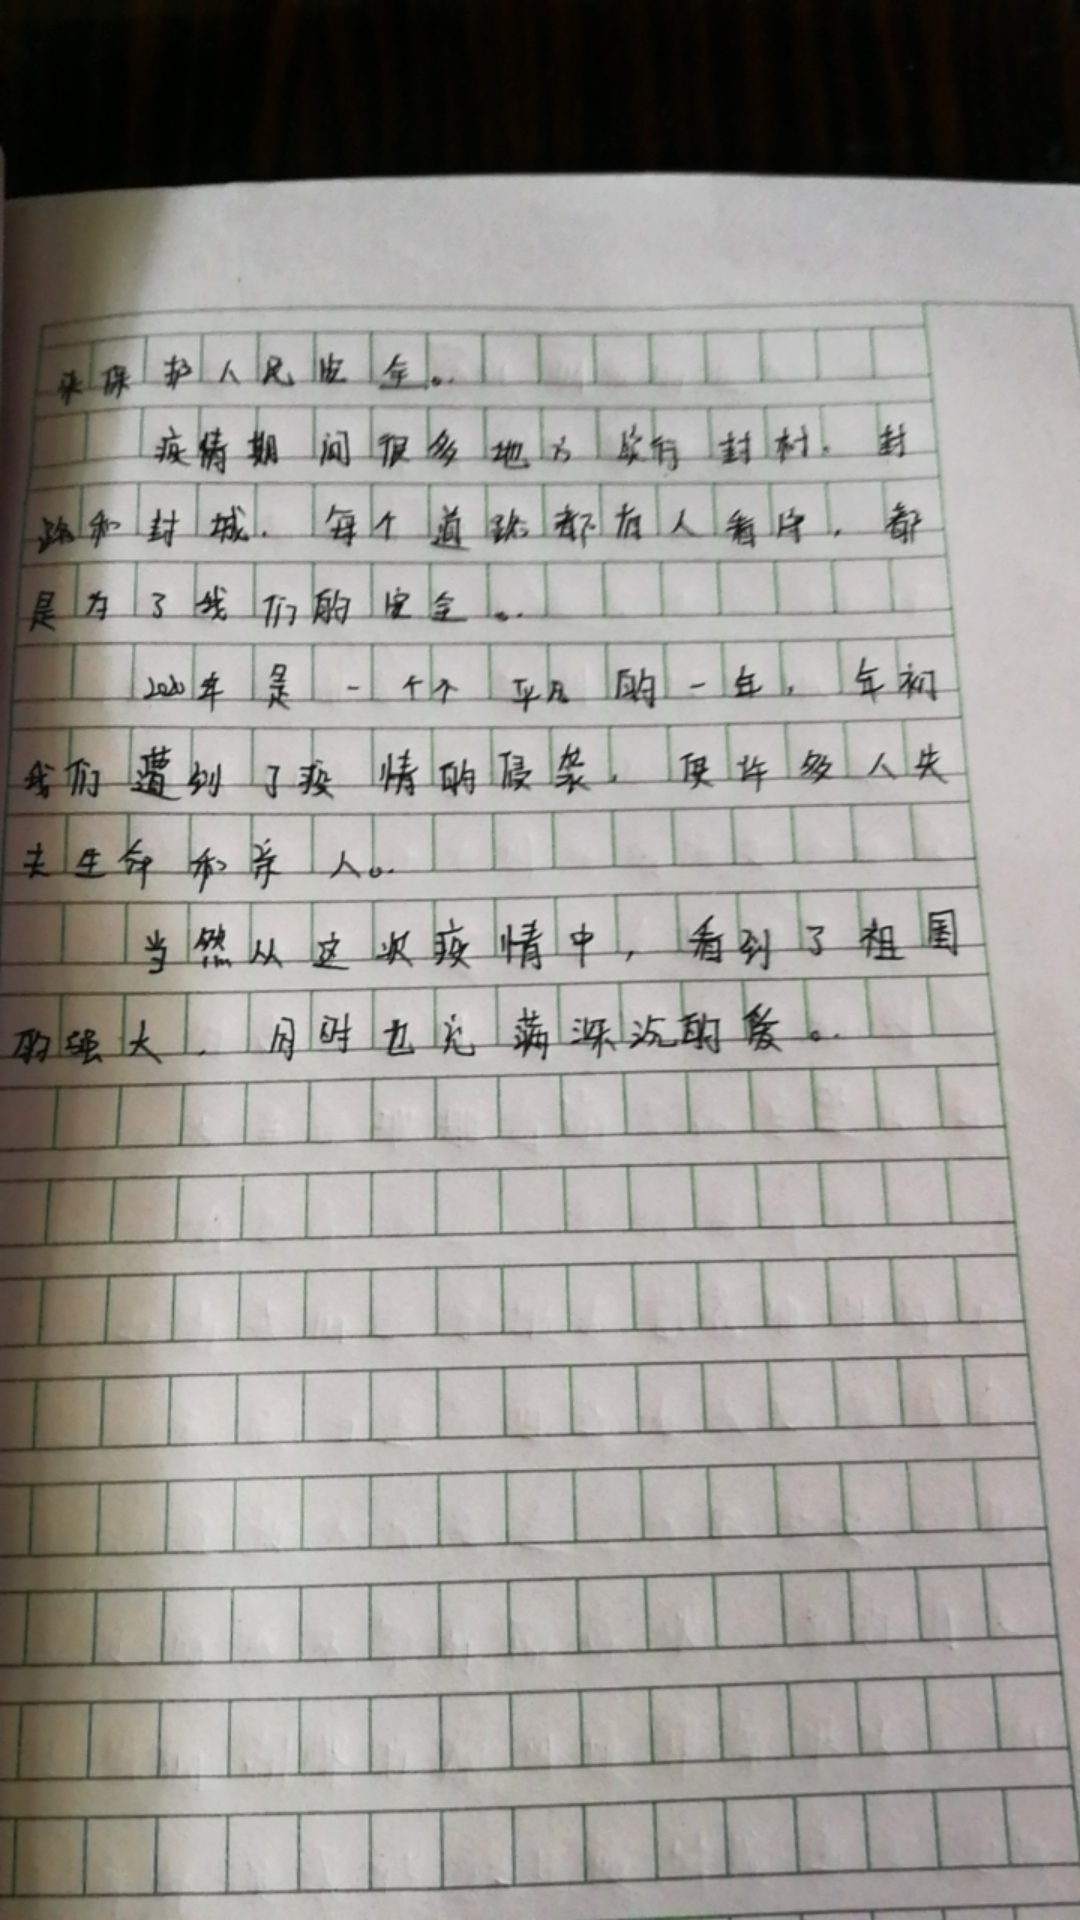 来保护人民安全。
疫情期间很多地方实行封村.封
路和封城.每个道路都有人看守.都
是为了我们的安全。
2020年是一个不平凡的一年,年初
我们遭到了疫情的侵袭.使许多人失
去生命和亲人。
当然从这次疫情中,看到了祖国
的强大.同时也充满深沉的爱。